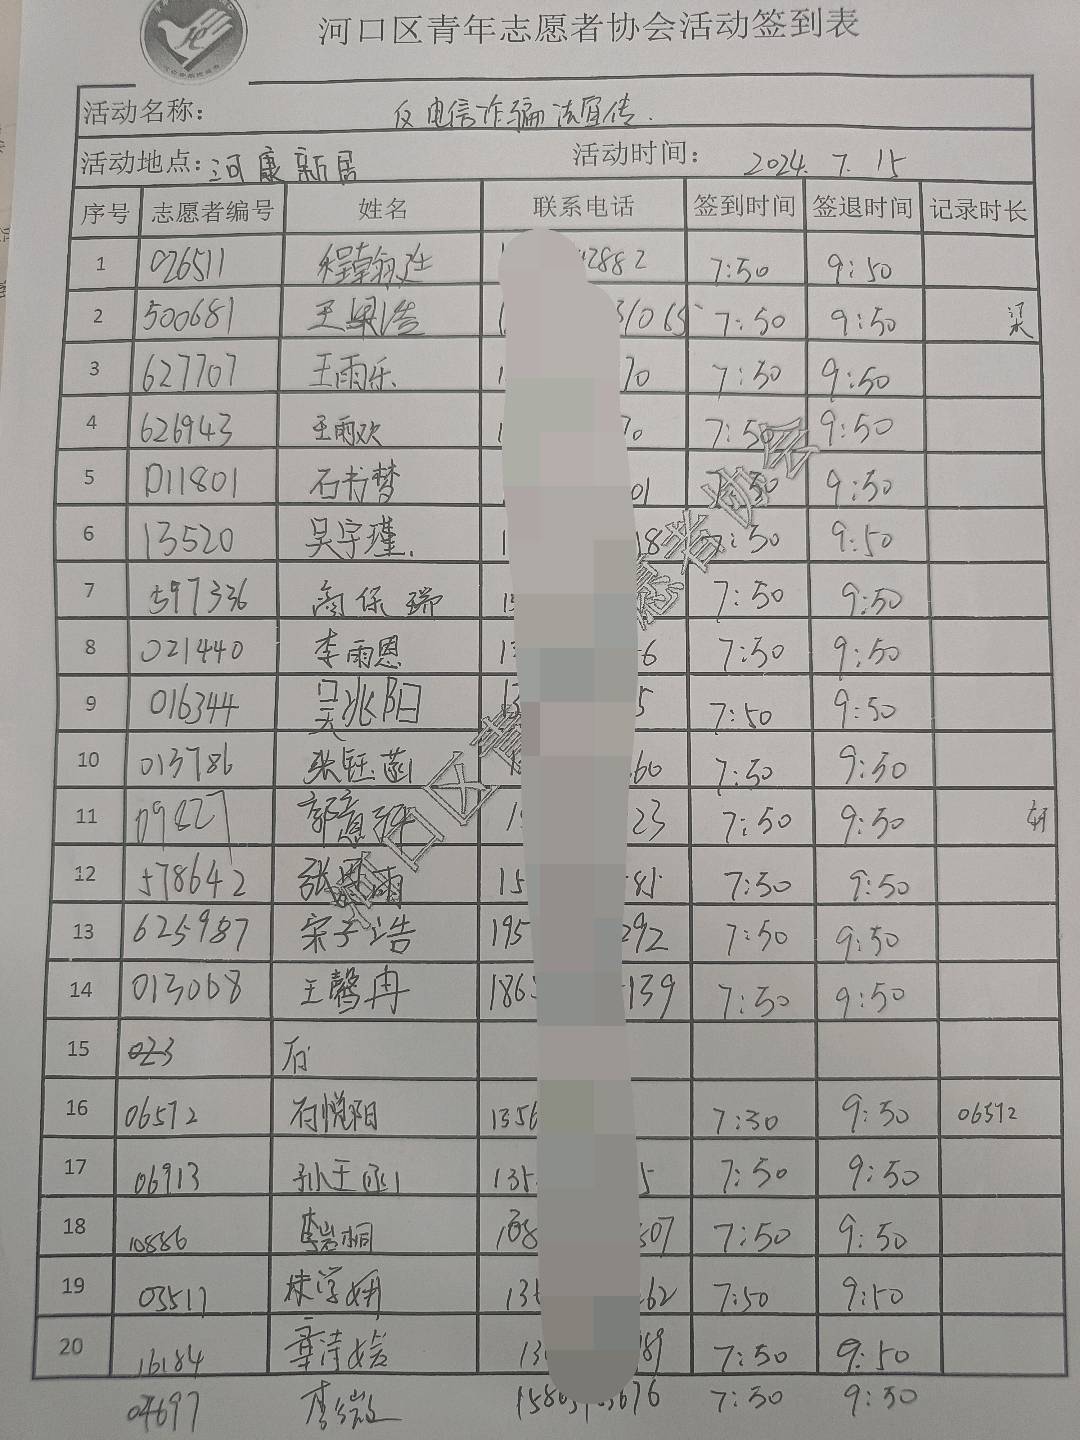 河口区青年志愿者协会活动签到表
活动名称: 反电信诈骗法宣传.
活动地点: 河康新居 活动时间: 2024. 7. 15
序号 志愿者编号 姓名 联系电话 签到时间 签退时间 记录时长
1 026511 2882 7:50 9:50
2 500681 王梁浩 31065 7:50 9:50 梁
3 627707 王雨乐 70 7:50 9:50
4 626943 王雨欢 70 7:50 9:50
5 D11801 石书梦 01 7:50 9:50
6 13520 吴宇瑾. 18 7:50 9:50
7 597336 高保瑞 7:50 9:50
8 021440 李雨恩 6 7:50 9:50
9 016344 吴兆阳 5 7:50 9:50
10 013786 张钰菡 60 7:50 9:50
11 09827 郭意轩 23 7:50 9:50 轩
12 578642 张 雨 15 7:50 9:50
13 625987 宋子浩 195 292 7:50 9:50
14 013068 王馨冉 186 139 7:50 9:50
15 023 石
16 06572 石悦阳 1356 7:30 9:50 06572
17 06913 孙王函 135 5 7:50 9:50
18 10886 李岩桐 507 7:50 9:50
19 03517 62 7:50 9:50
20 16184 章诗婼 89 7:50 9:50
04697 李微 7:50 9:50
河口区青 愿者协会